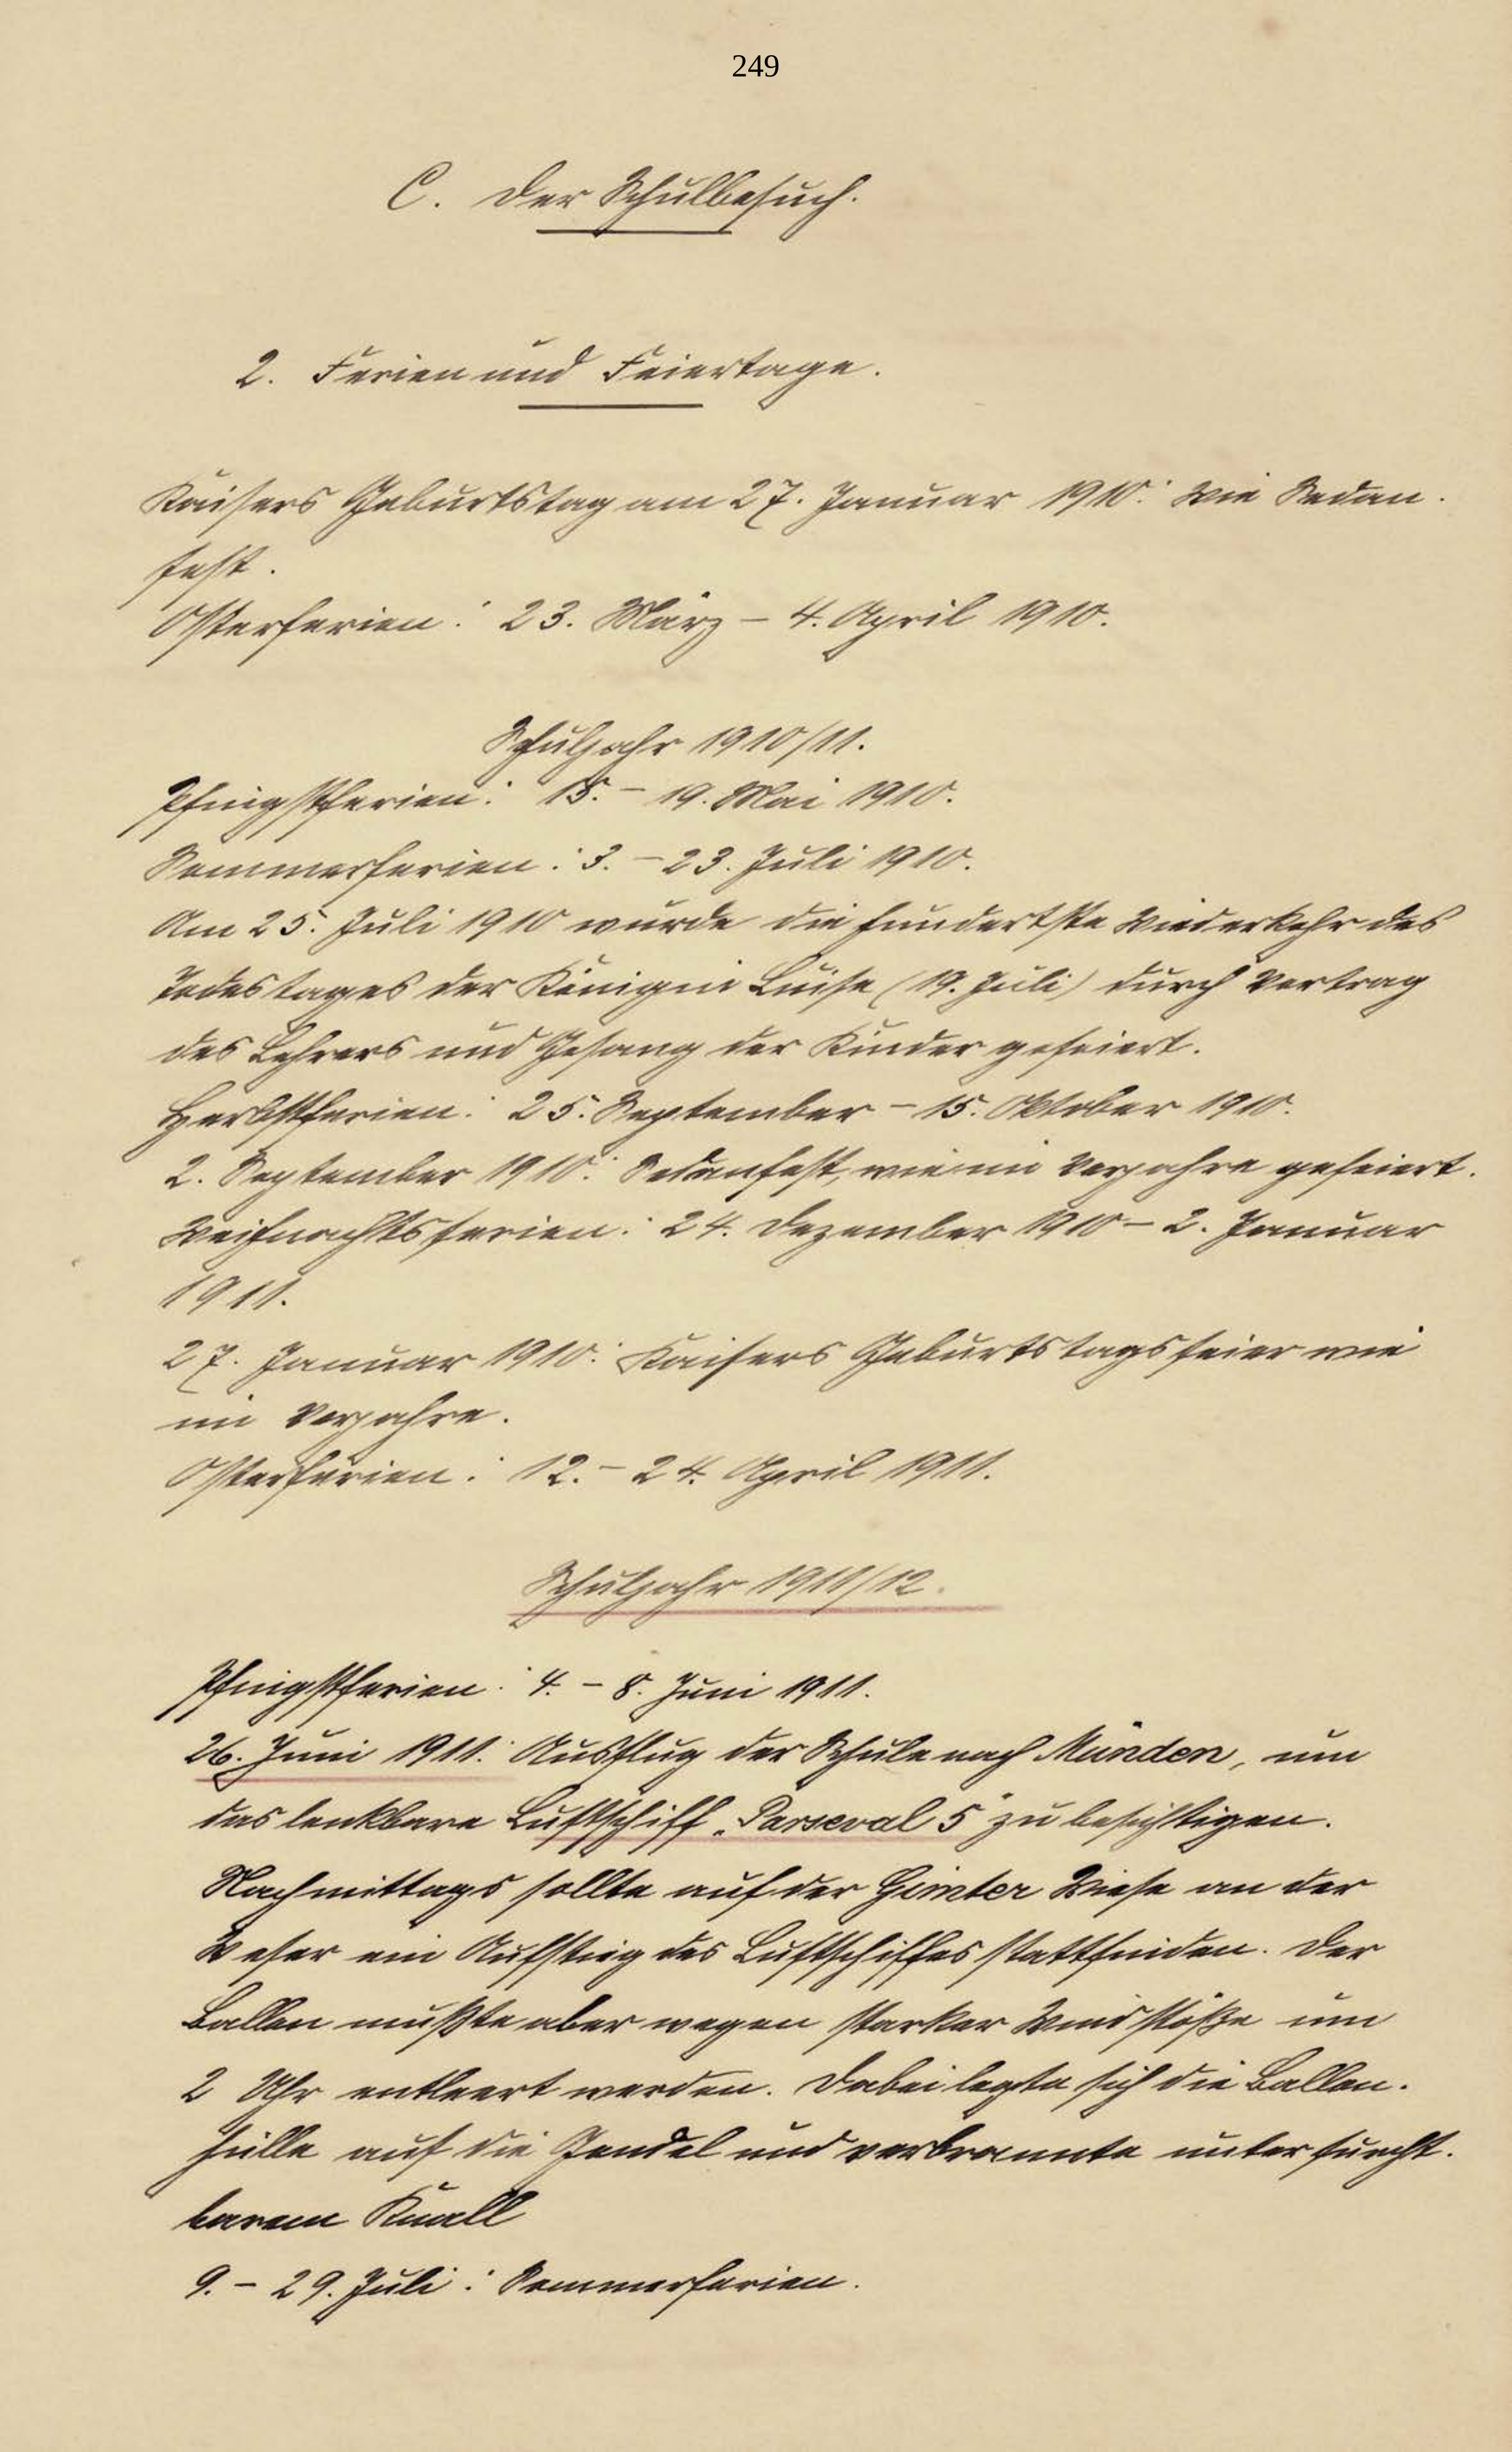 249
C. Der Schulbesuch.
2. Ferien und Feiertage.
Kaisers Geburtstag am 27. Januar 1910: Wie Sedan-
fest.
Osterferien: 23. März – 4. April 1910.
Schuljahr 1910/11.
Pfingstferien: 15. – 19. Mai 1910.
Sommerferien: 3. – 23. Juli 1910.
Am 25. Juli 1910 wurde die hundertste Wiederkehr des
Todestages der Königin Luise (19. Juli) durch Vortrag
des Lehrers und Gesang der Kinder gefeiert.
Herbstferien: 25. September – 15. Oktober 1910.
2. September 1910: Sedanfest, wie im Vorjahre gefeiert.
Weihnachtsferien: 24. Dezember 1910 – 2. Januar
1911.
27. Januar 1910: Kaisers Geburtstagsfeier wie
im Vorjahre.
Osterferien: 12. – 24. April 1911.
Schuljahr 1911/12.
Pfingstferien: 4. – 8. Juni 1911.
26. Juni 1911: Ausflug der Schule nach Münden, um
das lenkbare Luftschiff „Parseval 5" zu besichtigen.
Nachmittags sollte auf der Gimter Wiese an der
Weser ein Aufstieg des Luftschiffes stattfinden. Der
Ballon mußte aber wegen starker Windstöße um
2 Uhr entleert werden. Dabei legte sich die Ballon-
hülle auf die Gondel und verbrannte unter furcht-
barem Knall
9. – 29. Juli: Sommerferien.